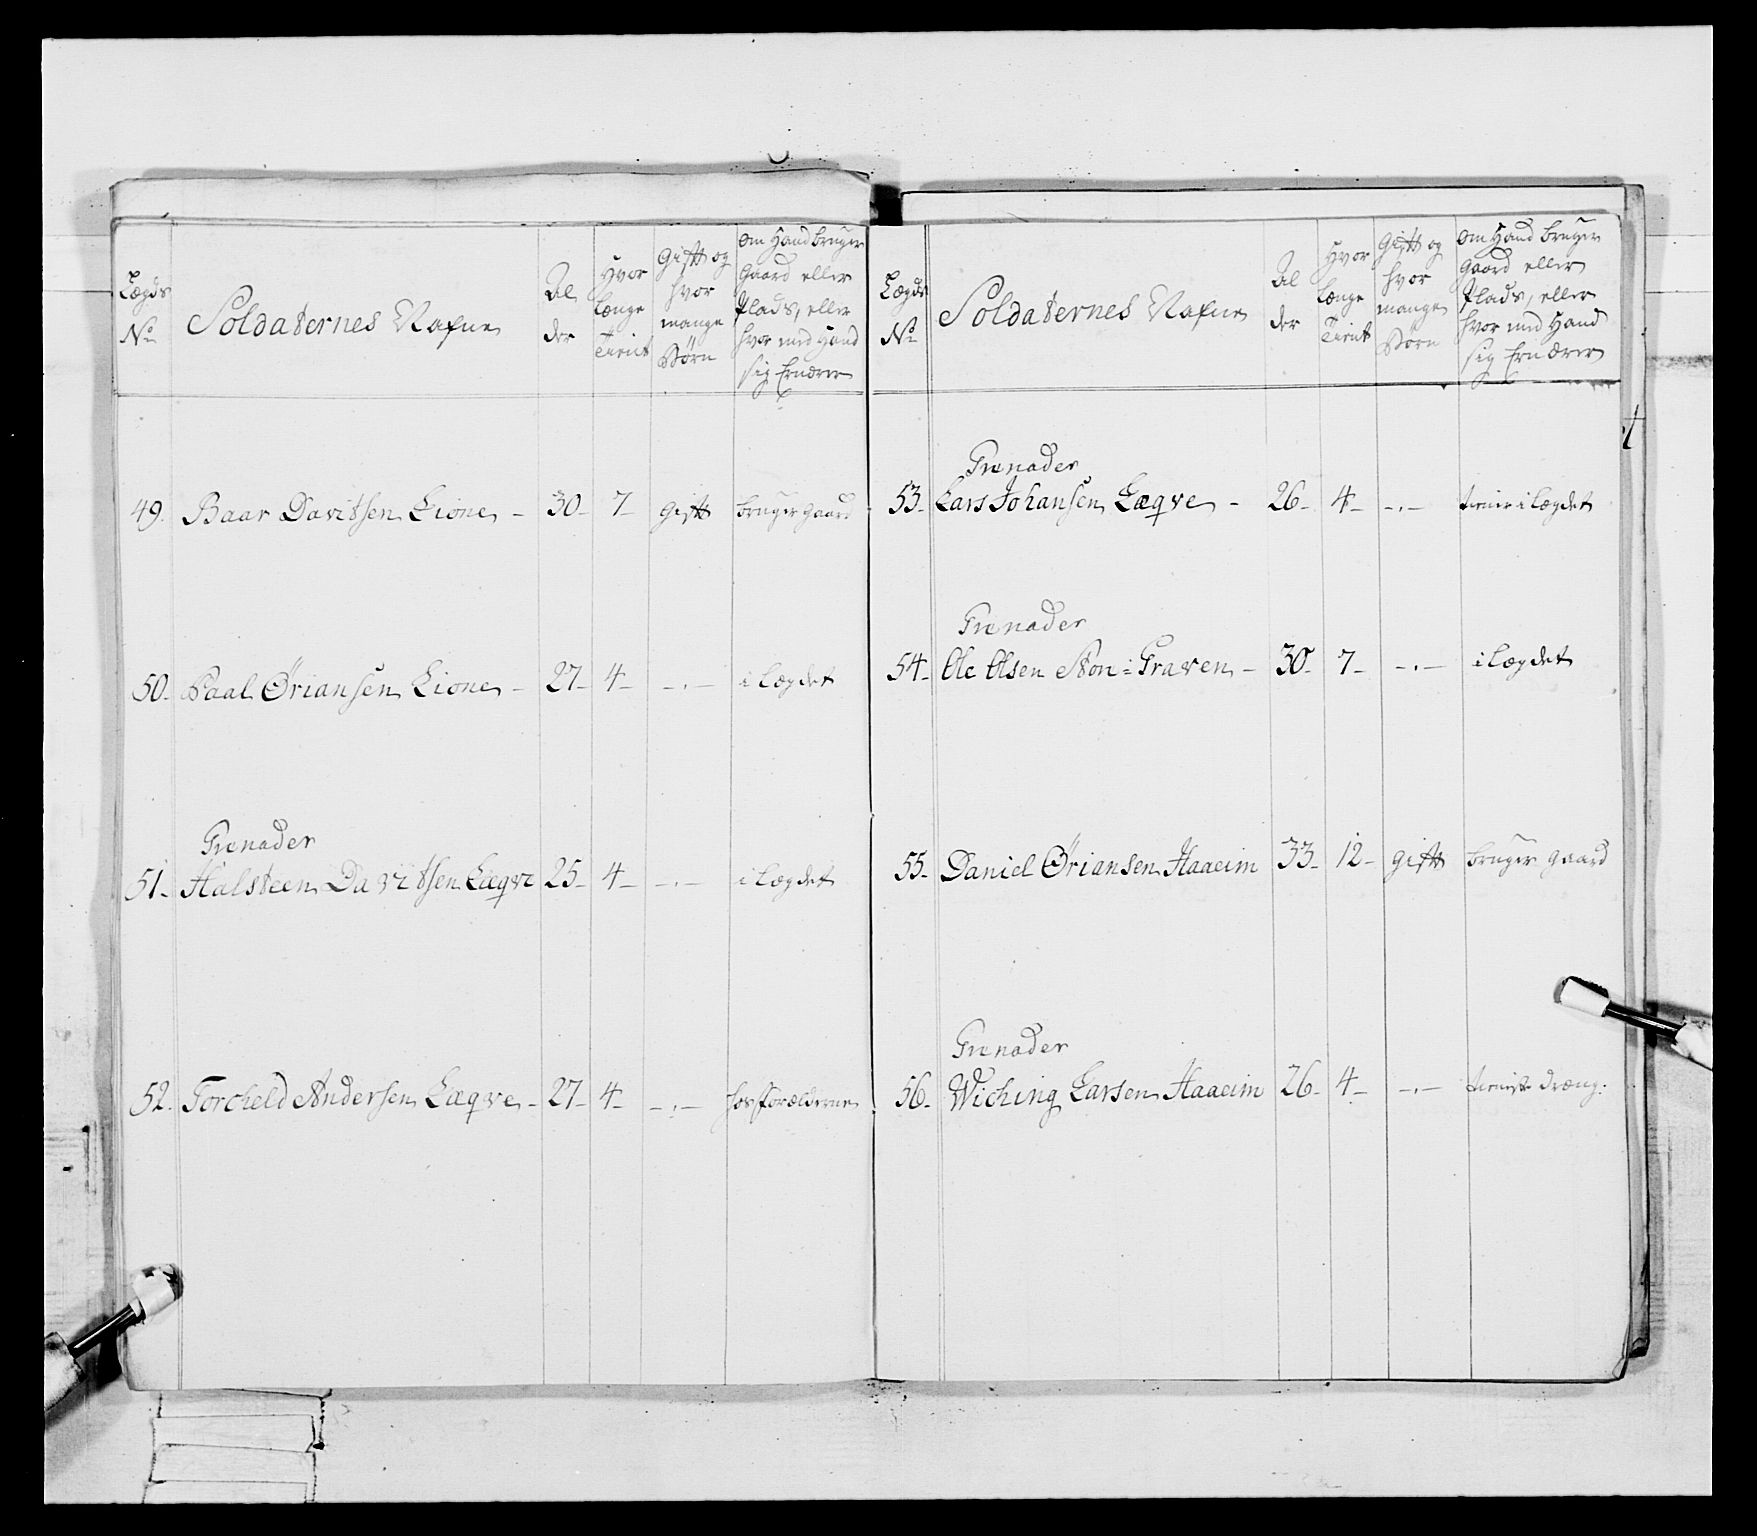 Lægds
No
Soldaternes Nafne
Al
der
Hvor
længe
Tient
Gift og
hvor
mange
Børn
om Hand bruger
Gaard eller
Plads, eller
hvor med Hand
sig Ernærer
49. Baar Davitsen Lione - 30- 7- Gift bruger gaard
50- Paal Øriansen Lione - 27- 4- -.- i Lægdet
Grenader
51- Halsteen Davitsen Læqve 25- 4- -.- i Lægdet
52. Torcheld Andersen Læqve - 27- 4- -.- hos forælderne
Lægds
No
Soldaternes Nafne
Al
der
Hvor
længe
Tient
Gift og
hvor
mange
Børn
om Hand bruger
Gaard eller
Plads, eller
hvor med Hand
sig Ernærer
Grenader
53- Lars Johansen Læqve - 26- 4- -.- tiener i Lægdet
Grenader
54- Ole Olsen Graven - 30- 7- -.- i Lægdet
55- Daniel Øriansen Haaeim 33- 12- Gift bruger gaard
Grenader
56- Wiching Larsen Haaeim 26- 4- -.- tieniste dræng.